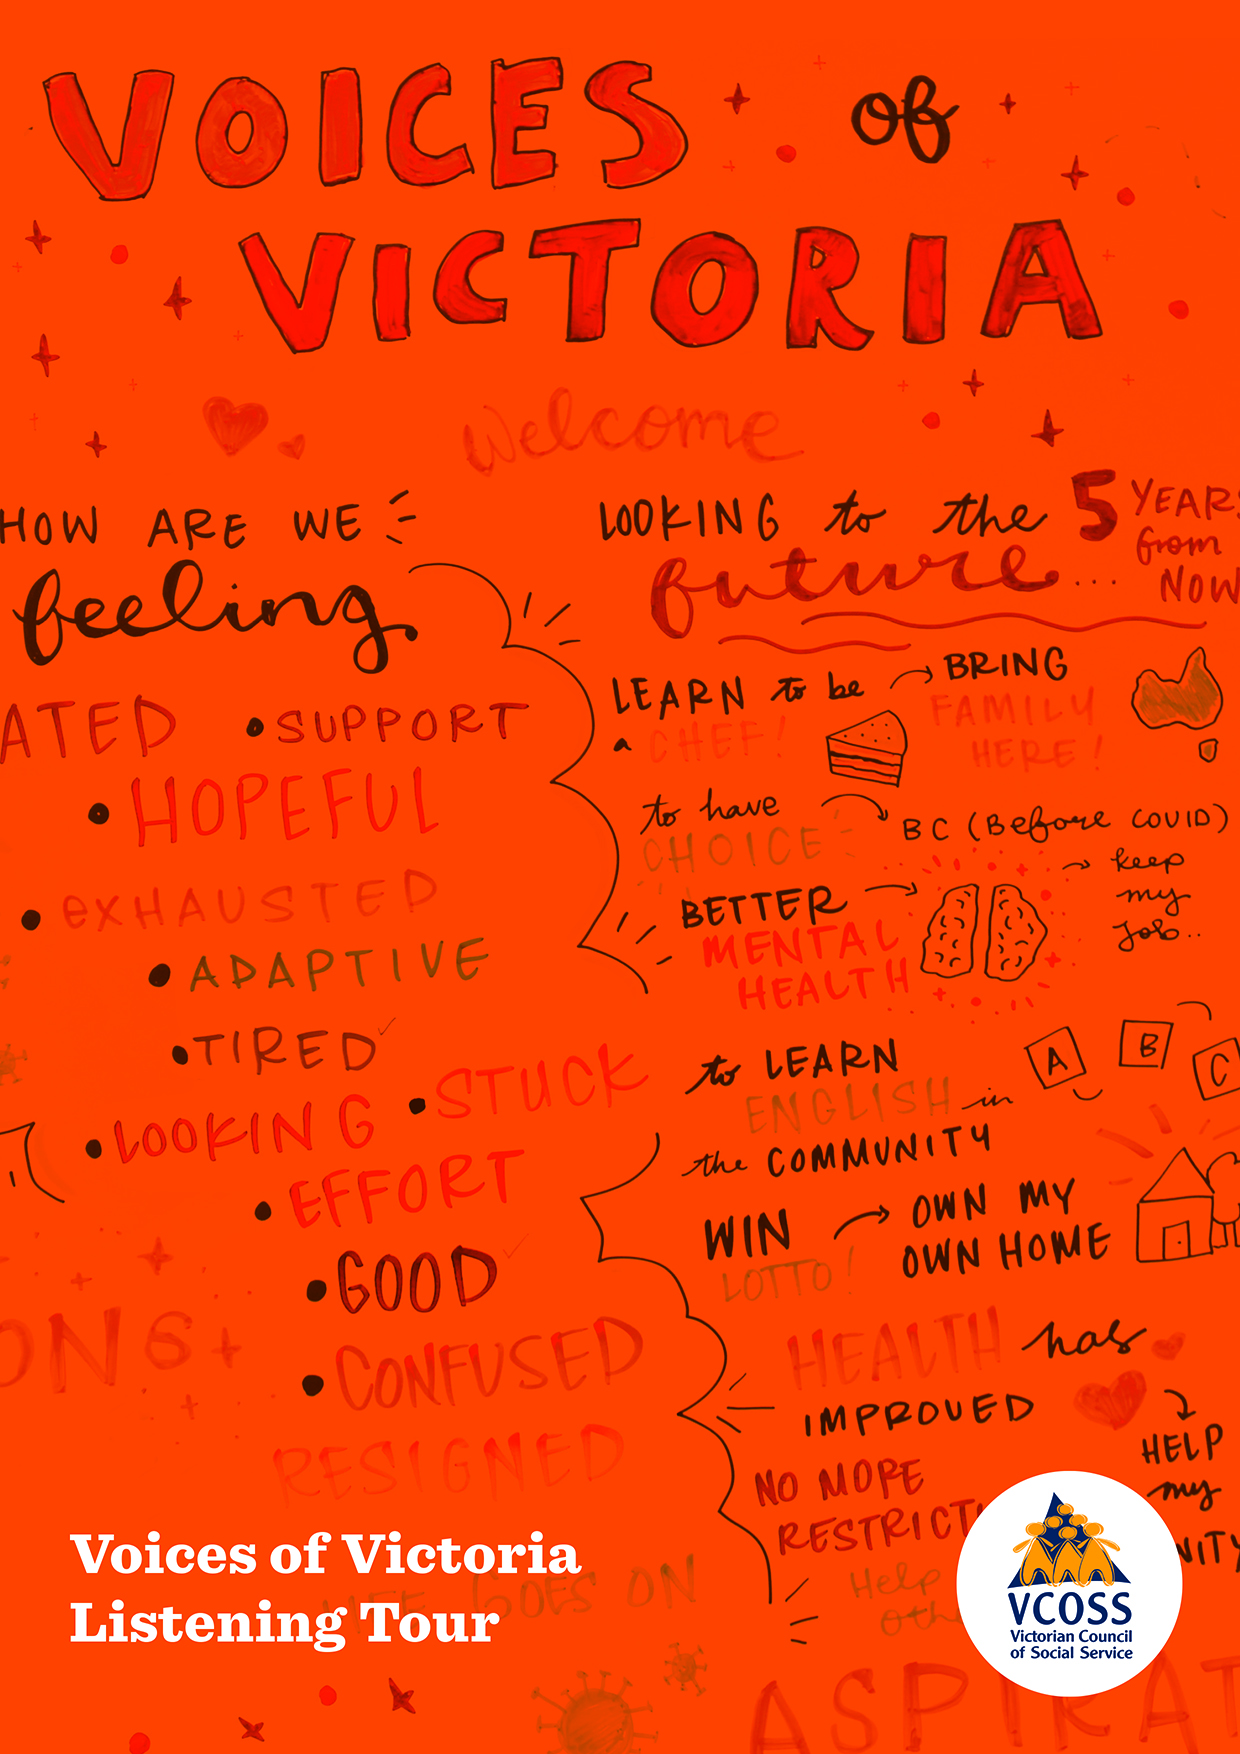 VOICES of
VICTORIA
welcome
HOW ARE WE
feeling
ATED
• SUPPORT
• HOPEFUL
• exHAUSTED
• ADAPTIVE
• TIRED
• STUCK
• LOOKING
• EFFORT
• GOOD
• CONFUSED
RESIGNED
GOES ON
ONS +
LOOKING to the
future...
5 YEARS
from
NOW
LEARN to be
a CHEF!
BRING
FAMILY
HERE!
to have
CHOICE
BC (Before COVID)
keep
my
job..
BETTER
MENTAL
HEALTH
to LEARN
ENGLISH in
the COMMUNITY
A B C
WIN
LOTTO!
OWN MY
OWN HOME
HEALTH has
IMPROVED
HELP
my
NITY
NO MORE
RESTRICTI
Help
Oth
ASPIRAT
Voices of Victoria
Listening Tour
VCOSS
Victorian Council
of Social Service